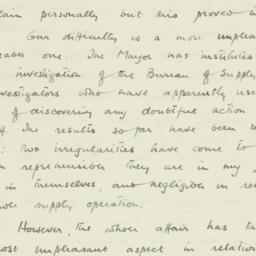 tain personally but this proved i
Our difficulty is a most unplea
able one. The Mayor has institute
investigation of the Bureau of Supply
vestigators who have apparently use
of discovering any doubtful action
The results so far have been
: two irregularities have come to
n reprehensible they are in my
in themselves, and negligible in re
ole supply operation.
However, the whole affair has t
ost unpleasant aspect in relation